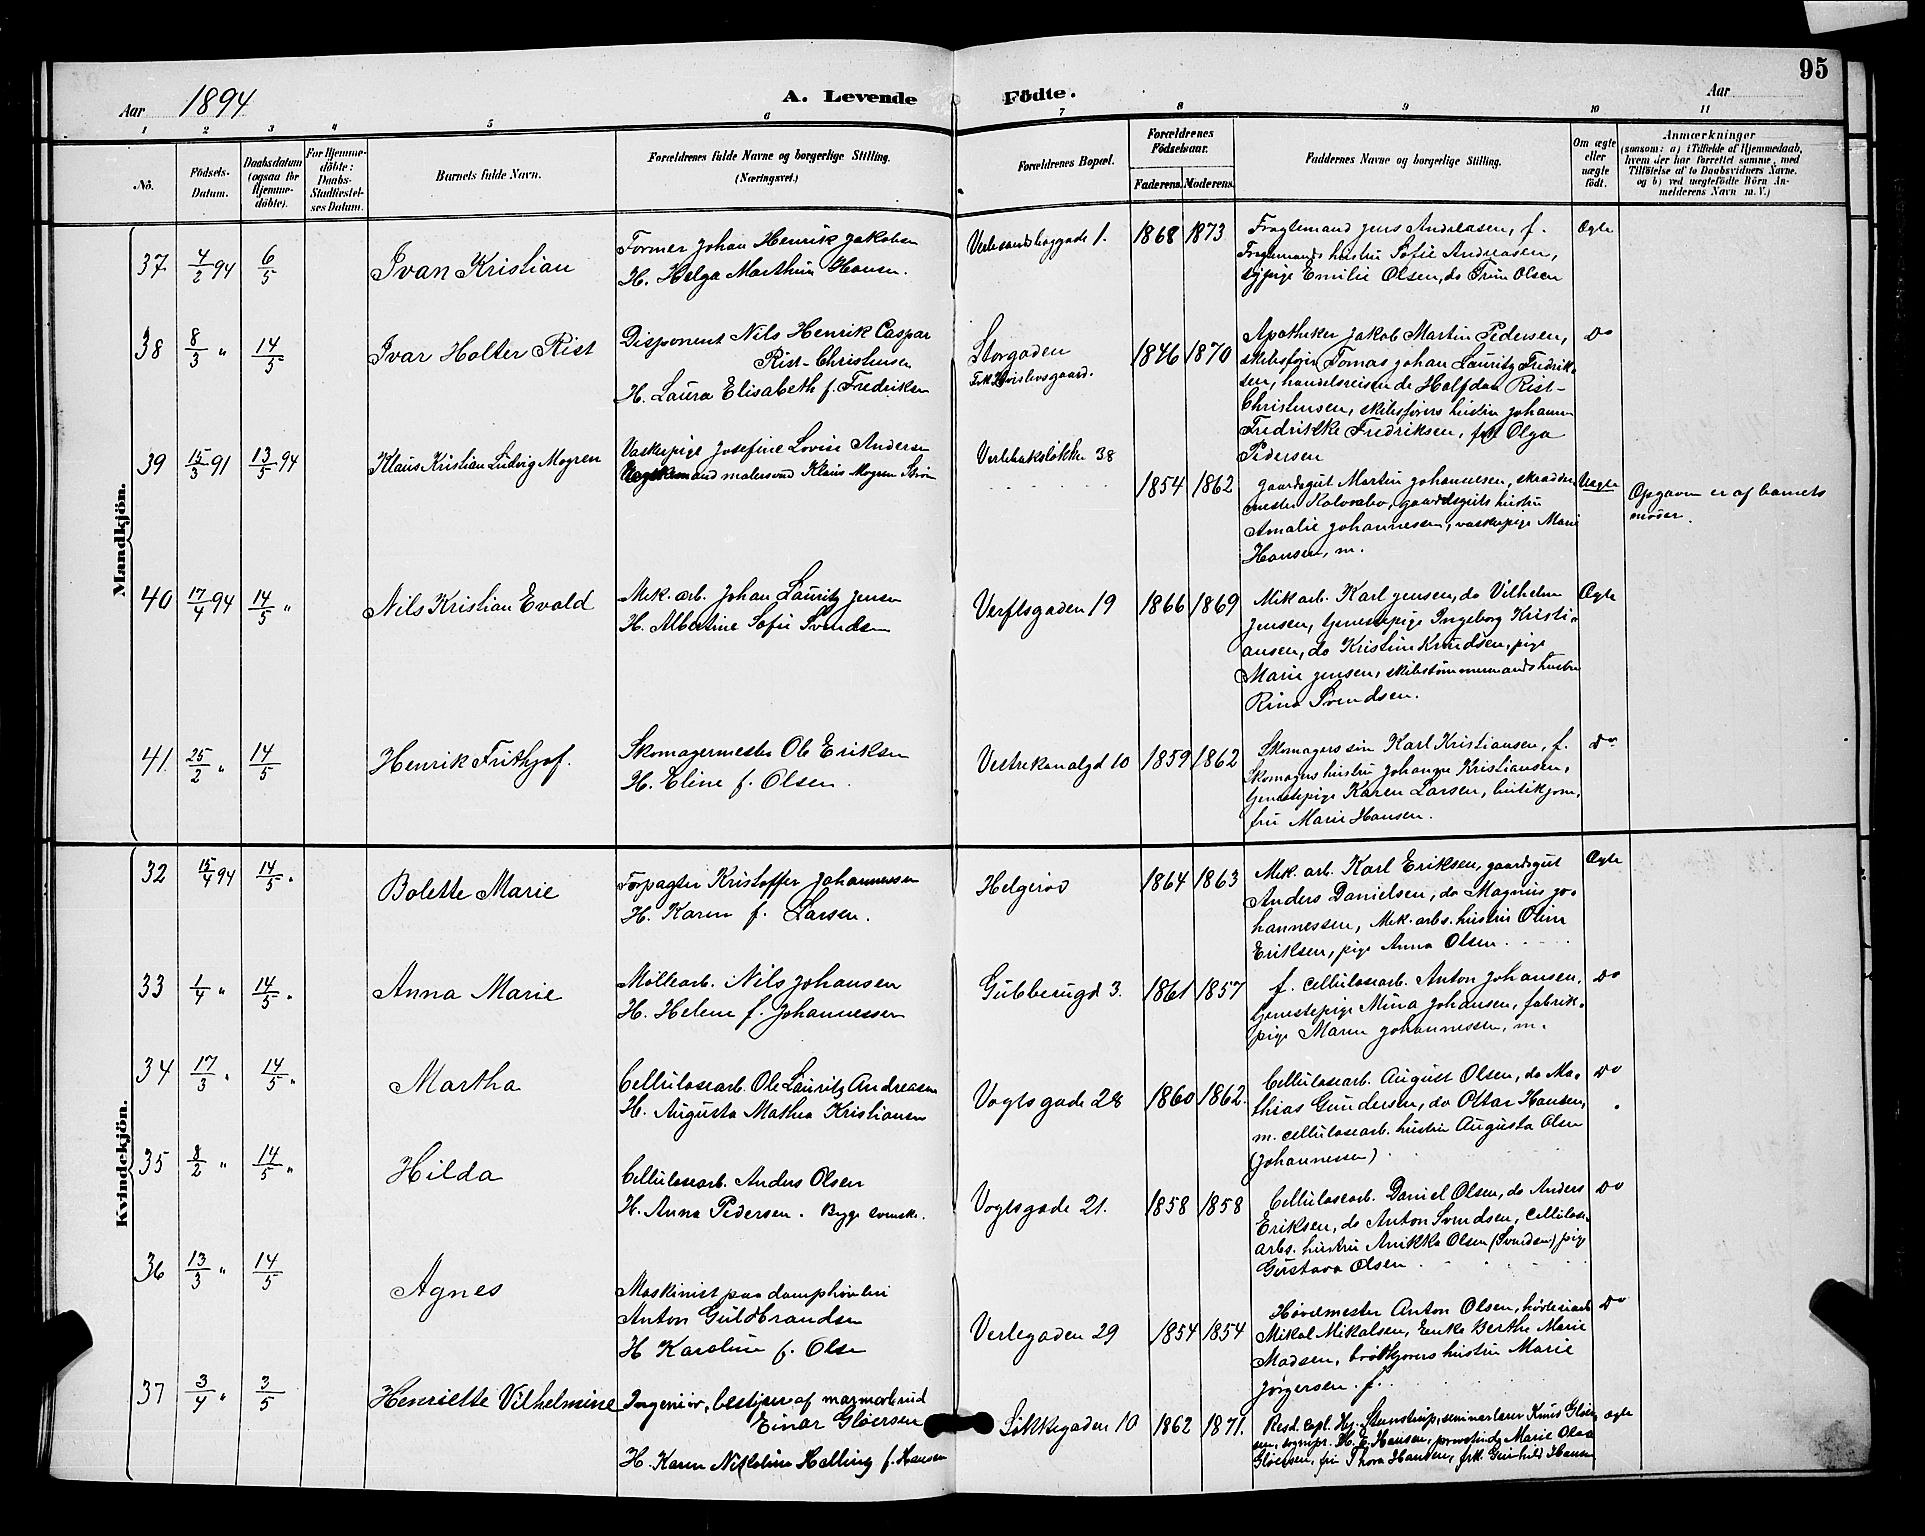 95
Aar 1894
A. Levende Födte.
Aar
1 2 3 4 5 6 7 8 9 10 11
No.
Födsels-Datum.
Daabsdatum (ogsaa for Hjemme-döbte).
For Hjemme-döbte: Daabs-Stadfæstel-ses Datum.
Barnets fulde Navn.
Forældrenes fulde Navne og borgerlige Stilling. (Næringsvei.)
Forældrenes Bopæl.
Forældrenes Födselsaar.
Faderens. Moderens.
Faddernes Navne og borgerlige Stilling.
Om ægte eller uægte födt.
Anmærkninger
(saasom: a) i Tilfælde af Hjemmedaab,
hvem der har forrettet samme, med
Tilföielse af to Daabsvidners Navne,
og b) ved uægtefödte Börn An-
melderens Navn m. V.)
Mandkjön.
37 4/2 94 6/5 Ivan Kristian
Former Johan Henrik Jakobsen
H. Helga Marthine Hansen.
1868 1873
Fragtemand Jens Andreasen, f.
Fragtemands hustru Sofie Andreasen,
sypige Emilie Olsen, do Trine Olsen
Ægte
38 8/3 " 14/5 Ivar Holter Rist
Disponent Nils Henrik Caspar
Rist-Christensen
H. Laura Elisabeth f. Fredriksen
Storgaden
1846 1870
Apotheker Jakob Martin Pedersen,
skibsfører Tomas Johan Lauritz Fredrik-
sen, handelsreisende Halfdan Rist-
Christensen, skibsførers hustru Johanne
Fredrikke Fredriksen, frk Olga
Pedersen
Do
39 15/3 91 13/5 94 Klaus Kristian Ludvig Mogren
Vaskepige Josefine Lovise Andersen
malersvend Klaus Mogren
38
1854 1862
Gaardsgut Martin Johannesen, skrædder-
mester Kolvrabo, gaardsguts hustru
Amalie Johannessen, vaskepige Marie
Hansen, m.
Uægte
Opgaven er af barnets
moder.
40 17/4 94 14/5 " Nils Kristian Evald
Mek. arb. Johan Lauritz Jensen
H. Albertine Sofie Svendsen
Verftsgaden 19
1866 1869
Mek arb. Karl Jensen, do Vilhelm
Jensen, tjenestepige Ingeborg Kristi-
ansen, do Kristine Knudsen, pige
Marie Jensen, skibstømmermands hustru
Rina Svendsen.
Ægte
41. 25/2 " 14/5 Henrik Frithjof.
Skomagermester Ole Eriksen
H. Eline f. Olsen.
Vestrekanalgd 10
1859 1862
Skomagers søn Karl Kristiansen, f.
Skomagers hustru Johanne Kristiansen,
tjenestepige Karen Larsen, butikjom-
fru Marie Hansen.
do
Kvindekjön.
32 15/4 94 14/5 " Bolette Marie
Forpagter Kristoffer Johannessen
H. Karen f. Larsen.
Helgerød
1864 1863
Mek. arb. Karl Eriksen, gaardsgut
Anders Danielsen, do Magnus Jo-
hannessen, Mek. arbs. hustru Oline
Eriksen, pige Anna Olsen
Ægte
33 1/4 " 14/5 " Anna Marie
Møllearb. Nils Johansen
H. Helene f. Johannessen
Gubberugd 3.
1861 1857
f. Cellulosearb. Anton Johansen,
tjenestepige Mina Johansen, fabrik-
pige Maren Johannessen, m.
Do
34 17/3 " 14/5 " Martha
Cellulosearb. Ole Lauritz Andreasen
H. Augusta Mathea Kristiansen
Vogtsgade 28
1860 1862.
Cellulosearb. August Olsen, do Ma-
thias Gundersen, do Ottar Hansen,
m. cellulosearb. hustru Augusta Olsen
(Johannessen)
Do
35 8/2 " 14/5 " Hilda
Cellulosearb. Anders Olsen
H. Anna Pedersen. Begge svenske.
Vogtsgade 21.
1858 1858
Cellulosearb. Daniel Olsen, do Anders
Eriksen, do Anton Svendsen, Cellulose-
arbs. hustru Anikka Olsen (Svendsen) pige
Gustava Olsen
Do
36 13/3 " 14/5 Agnes
Maskinist paa damphøvleri
Anton Guldbrandsen
H Karoline f. Olsen
Verlegaden 29
1854 1854
Høvelmester Anton Olsen, høvleriarb
Mikal Mikalsen, Enke Berthe Marie
Madsen, hustru Marie
Jørgersen. f.
Do
37 3/4 " 3/5 Henriette Vilhelmine
Ingeniør, bestyrer af marmorbrud
Einar Gløersen
H. Karen Nikoline Helling f. Hansen
Løkkegaden 10
1862 1871.
Resd. Cpl. Hj. Stenstrup, seminarlærer Knud Gløer-
sen, sognpr. H. E. Hansen, Marie Olea
Gløersen, fru Thora Hansen, frk. Gunhild Hansen
ægte